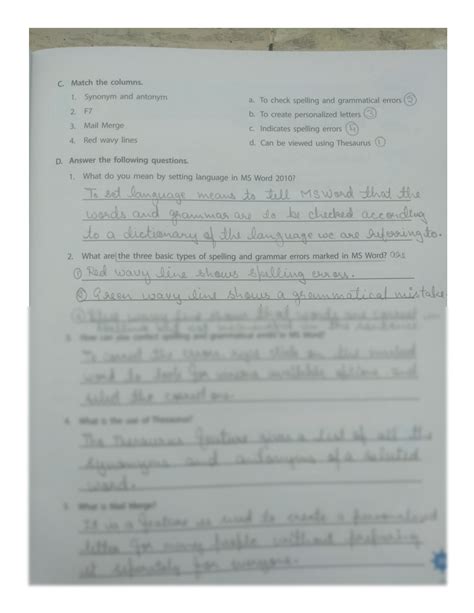 C. Match the columns.
1. Synonym and antonym
2. F7
3. Mail Merge
4. Red wavy lines
a. To check spelling and grammatical errors ②
b. To create personalized letters ③
c. Indicates spelling errors ④
d. Can be viewed using Thesaurus ①
D. Answer the following questions.
1. What do you mean by setting language in MS Word 2010?
To set language means to tell MS Word that the
words and grammar are to be checked according
to a dictionary of the language we are referring to.
2. What are the three basic types of spelling and grammar errors marked in MS Word?
① Red wavy line shows spelling errors.
② Green wavy line shows a grammatical mistake
③ Blue wavy line shows that words are correct
in the sentence
3. How can you correct spelling and grammatical errors in MS Word?
To correct the errors, right click on the marked
word to look for various available options and
select the correct one.
4. What is the use of Thesaurus?
The Thesaurus feature gives a list of all the
synonyms and antonyms of a selected
word.
5. What is Mail Merge?
It is a feature is used to create a personalised
letter for many people without preparing
it separately for everyone.